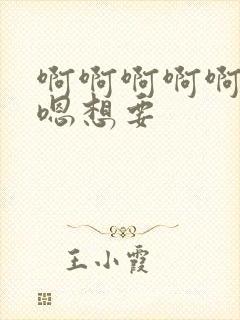 啊啊啊啊啊
嗯想要
王小霞